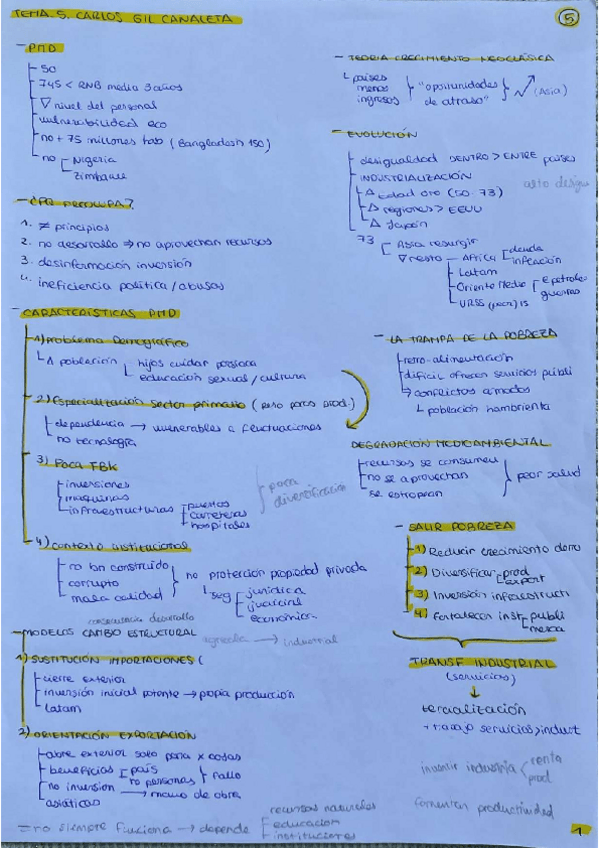 TEMA 5. CARLOS GIL CANALETA
5
- PMD
50
745 < RNB media 3 años
∇ nivel del personal
vulnerabilidad eco
no + 75 millones hab (Bangladesh 150)
no Nigeria
Zimbawe
- ¿PQ PREOCUPA?
1. ≠ principios
2. no desarrollo ⇒ no aprovechan recursos
3. desinformación inversión
4. ineficiencia política / abusos
- CARACTERÍSTICAS PMD
1) problema Demográfico
Δ población
hijos cuidar
educación sexual / cultura
2) Especialización sector primario (pero pocos prod.)
dependencia → vulnerables a fluctuaciones
no tecnología
3) Poca FBK
inversiones
maquinas
infraestructuras
puertos
carreteras
hospitales
poca
diversificación
4) contexto institucional
no bn construido
corrupto
mala calidad
no protección propiedad privada
seg
jurídica
judicial
económica
consecuencia desarrollo
- MODELOS CAMBIO ESTRUCTURAL
agrícola → industrial
1) SUSTITUCIÓN IMPORTACIONES (
cierre exterior
inversión inicial potente → propia producción
Latam
2) ORIENTACIÓN EXPORTACIÓN
abre exterior solo para x cosas
beneficios país
no personas
fallo
no inversion → mano de obra
asiáticas
= no siempre funciona → depende
recursos naturales
educacion
instituciones
- TEORIA CRECIMIENTO NEOCLÁSICA
países
menos
ingresos
"oportunidades
de atraso"
(Asia)
- EVOLUCIÓN
desigualdad DENTRO > ENTRE países
INDUSTRIALIZACIÓN
alto desigu
Δ Edad oro (50. 73)
Δ regiones > EEUU
Δ Japón
73
Asia resurgir
∇ resto
Africa
deuda
inflación
Latam
Oriente Medio
petrole
guerras
URSS
- LA TRAMPA DE LA POBREZA
retro-alimentación
dificil ofrecer servicios públi
conflictos armados
población hambrienta
DEGRADACIÓN MEDIOAMBIENTAL
recursos se consumen
no se aprovechan
se estropean
peor salud
- SALIR POBREZA
1) Reducir crecimiento demo
2) Diversificar
prod
export
3) Inversión infraestructi
4) Fortalecen inst
publi
merca
TRANSF INDUSTRIAL
(servicios)
tercialización
+ trabajo servicios > indust
invertir industria
renta
prod
fomentan productividad
1